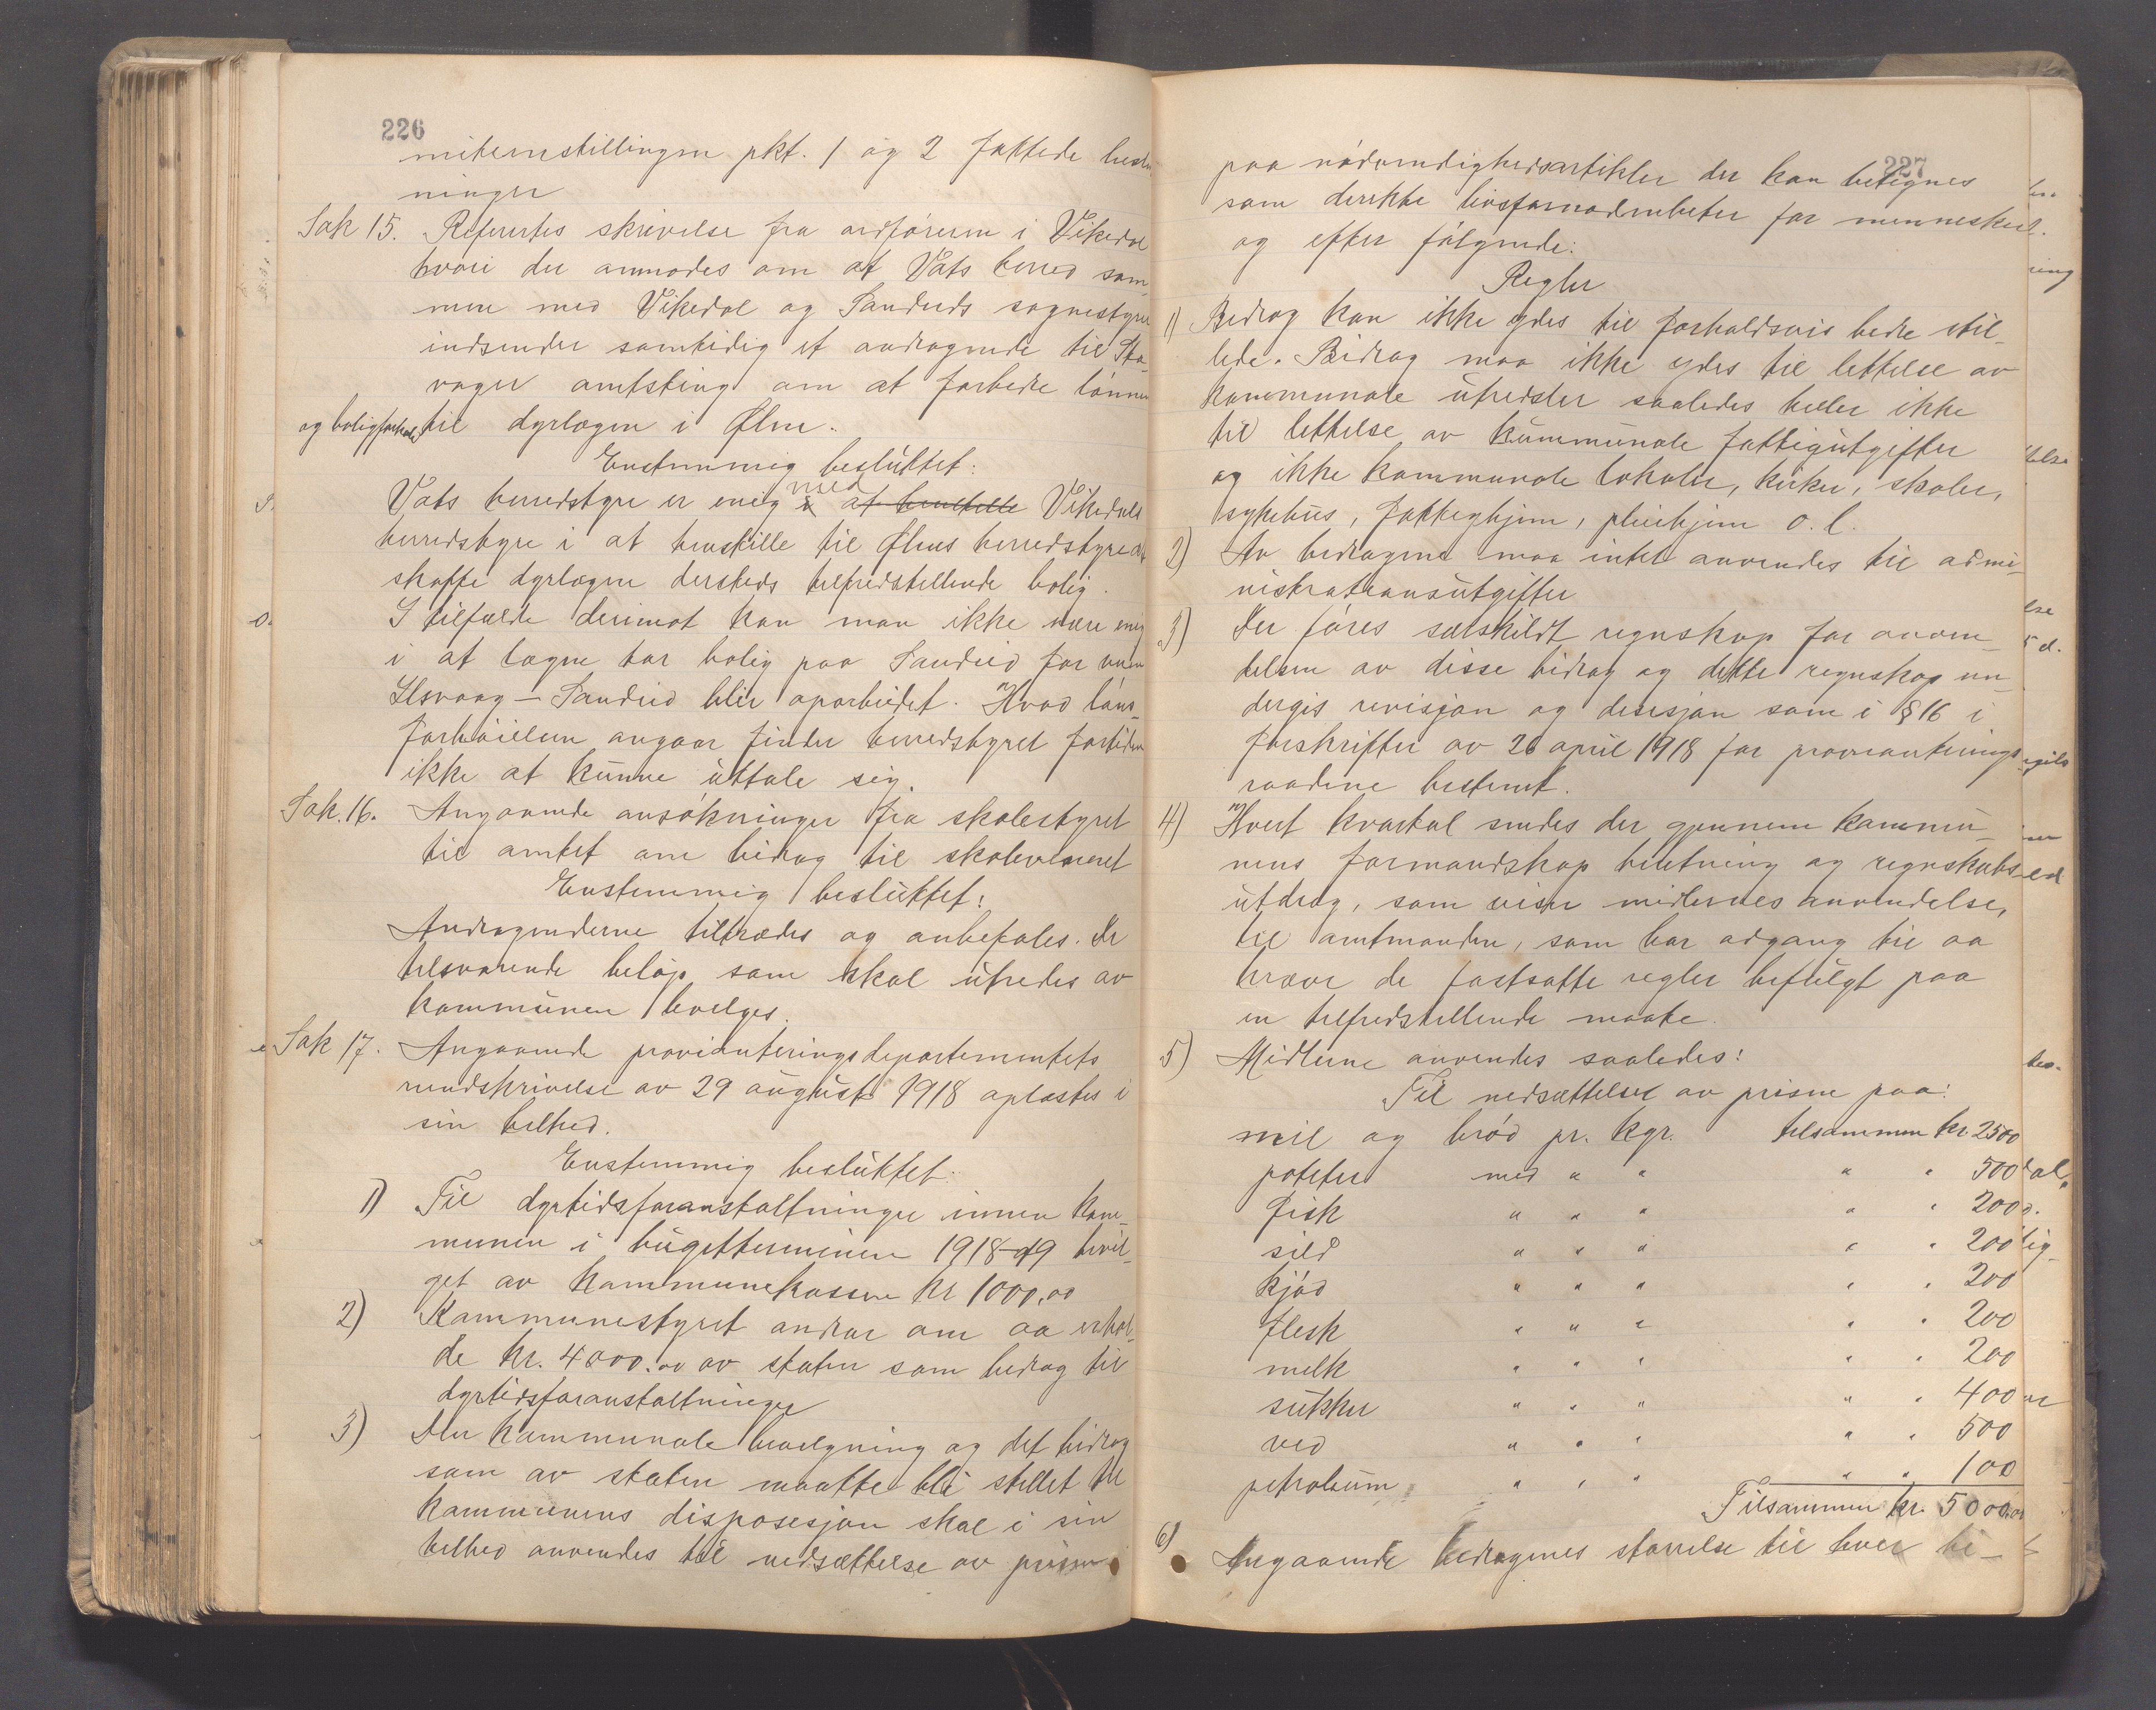 226
miteinstillingen pkt. 1 og 2 fattede
ninger
Sak 15. Refertes skrivelse fra ordføreren i Vikedal
hvori der anmodes om at Vats herred sam-
men med Vikedal og Sandeids sognestyre
indsender samtidig et andragende til Sta-
vager amtsting om at forbedre lønnen
og boligforhold til dyrlægen i Ølen.
Enstemmig besluttet:
Vats herredstyre er enig i med at henstille Vikedals
herredstyre i at henstille til Ølens herredstyre at
skaffe dyrlægen dersteds tilfredstillende bolig.
I tilfælde derimot kan man ikke være enig
i at lægen tar bolig paa Sandeid før veien
Ilsvaag – Sandeid blir oparbeidet. Hvad løns-
forhøielsen angaar finder herredstyret fortiden
ikke at kunne uttale sig.
Sak. 16. Angaaende ansøkninger fra skolestyret
til amtet om bidrag til skolevæsenet
Enstemmig besluttet:
Andragenderne tiltrædes og anbefales. De
tilsvarende beløp som skal utredes av
kommunen bevilges.
Sak 17. Angaaende provianteringsdepartementets
rundskrivelse av 29 august 1918 oplæstes i
sin helhed.
Enstemmig besluttet:
1) Til dyrtidsforanstaltninger innen kom-
munen i bugetterminen 1918-19 bevil-
get av kommunekassen kr 1000,00
2) Kommunestyret andrar om aa erhol-
de kr. 4000.00 av staten som bedrag til
dyrtidsforanstaltninger
3) Den kommunale bevilgning og det bidrag
som av staten maatte bli stillet til
kommunens disposisjon skal i sin
helhed anvendes til nedsættelse av prisen
227
paa nødvendighedsartikler der kan betegnes
som direkte livsfornødenheter for mennesker
og efter følgende:
Regler
1) Bedrag kan ikke ydes til forholdsvis bedre stil-
lede. Bidrag maa ikke ydes til lettelse av
kommunale utredsler saaledes heller ikke
til lettelse av kummunale fattigutgifter
og ikke kommunale lokaler, kirker, skoler,
sykehus, fattighjem, pleiehjem o. l.
2) Av bedragene maa intet anvendes til admi-
nistrationsutgifter
3) Der føres særskildt regnskap for anven-
delsen av disse bidrag og dette regnskap un-
dergis revisjon og desisjon som i § 16 i
forskrifter av 26 april 1918 for provianterings-
raadene bestemt.
4) Hvert kvartal sendes der gjennem kommu-
nens formandskap beretning og regnskabs-
utdrag, som viser midlernes anvendelse,
til amtmanden, som har adgang til aa
kræve de fastsatte regler befulgt paa
en tilfredstillende maate.
5) Midlerne anvendes saaledes:
Til nedsættelse av prisene paa:
mel og brød pr. kgr. tilsammen kr 2500
poteter med " " " " 500
fisk " " " " " 200
sild " " " " " 200
kjød " " " " " 200
flesk " " " " " 200
melk " " " " " 200
sukker " " " " " 400
ved " " " " " 500
petroleum " " " " " 100
Tilsammen kr. 5000.00
6) Angaaende bedragenes størrelse til hver be-